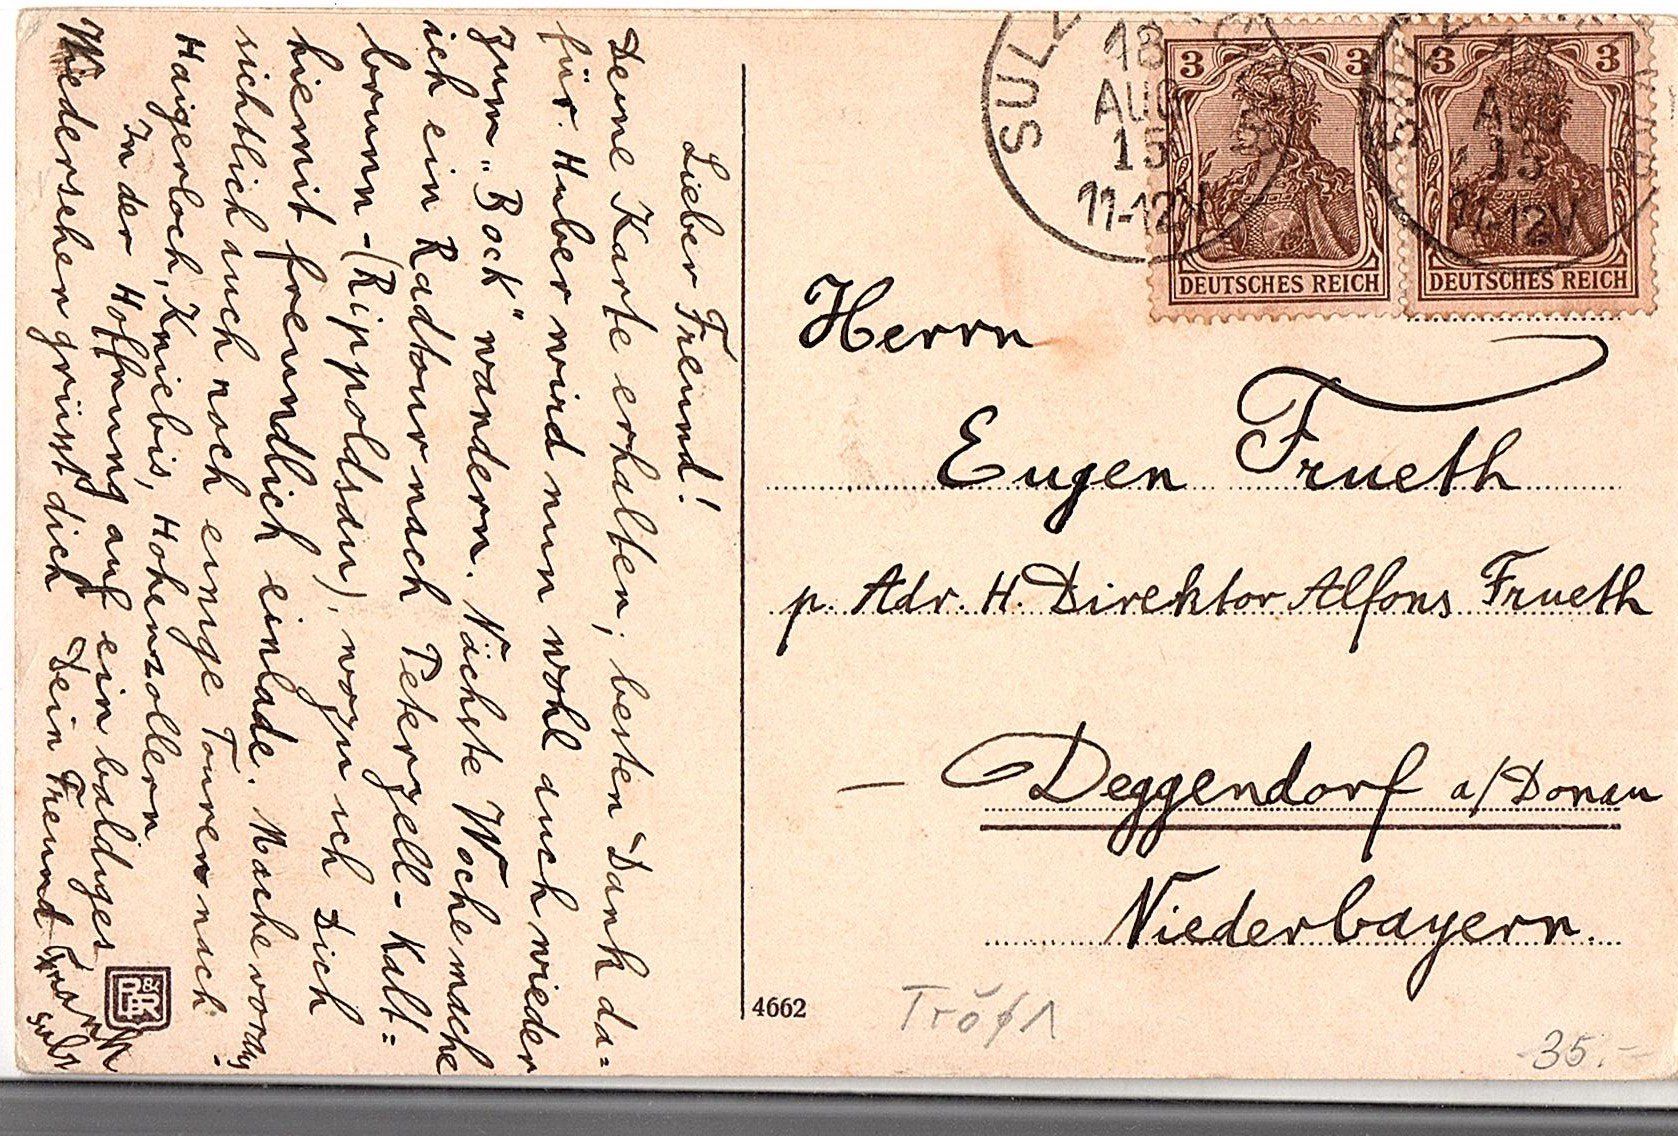 Lieber Freund!
Deine Karte erhalten, besten Dank da=
für. Huber wird nun wohl auch wieder
zum „Bock" wandern. Nächste Woche mache
ich ein Radtour nach Peterzell-Kalt=
brunn-(Rippoldsau), wozu ich Dich
hiemit freundlich einlade. Mache voraus-
sichtlich auch noch einige Touren nach
Haigerloch, Kniebis, Hohenzollern
In der Hoffnung auf ein baldiges
Wiedersehen grüsst dich Dein Freund
4662
SULZ
18
AUG
15
11-12V
3 3
DEUTSCHES REICH
18
AUG
15
11-12V
3 3
DEUTSCHES REICH
Herrn
Eugen Frueth
p. Adr. H. Direktor Alfons Frueth
- Deggendorf a/Donau
Niederbayern.
35.-